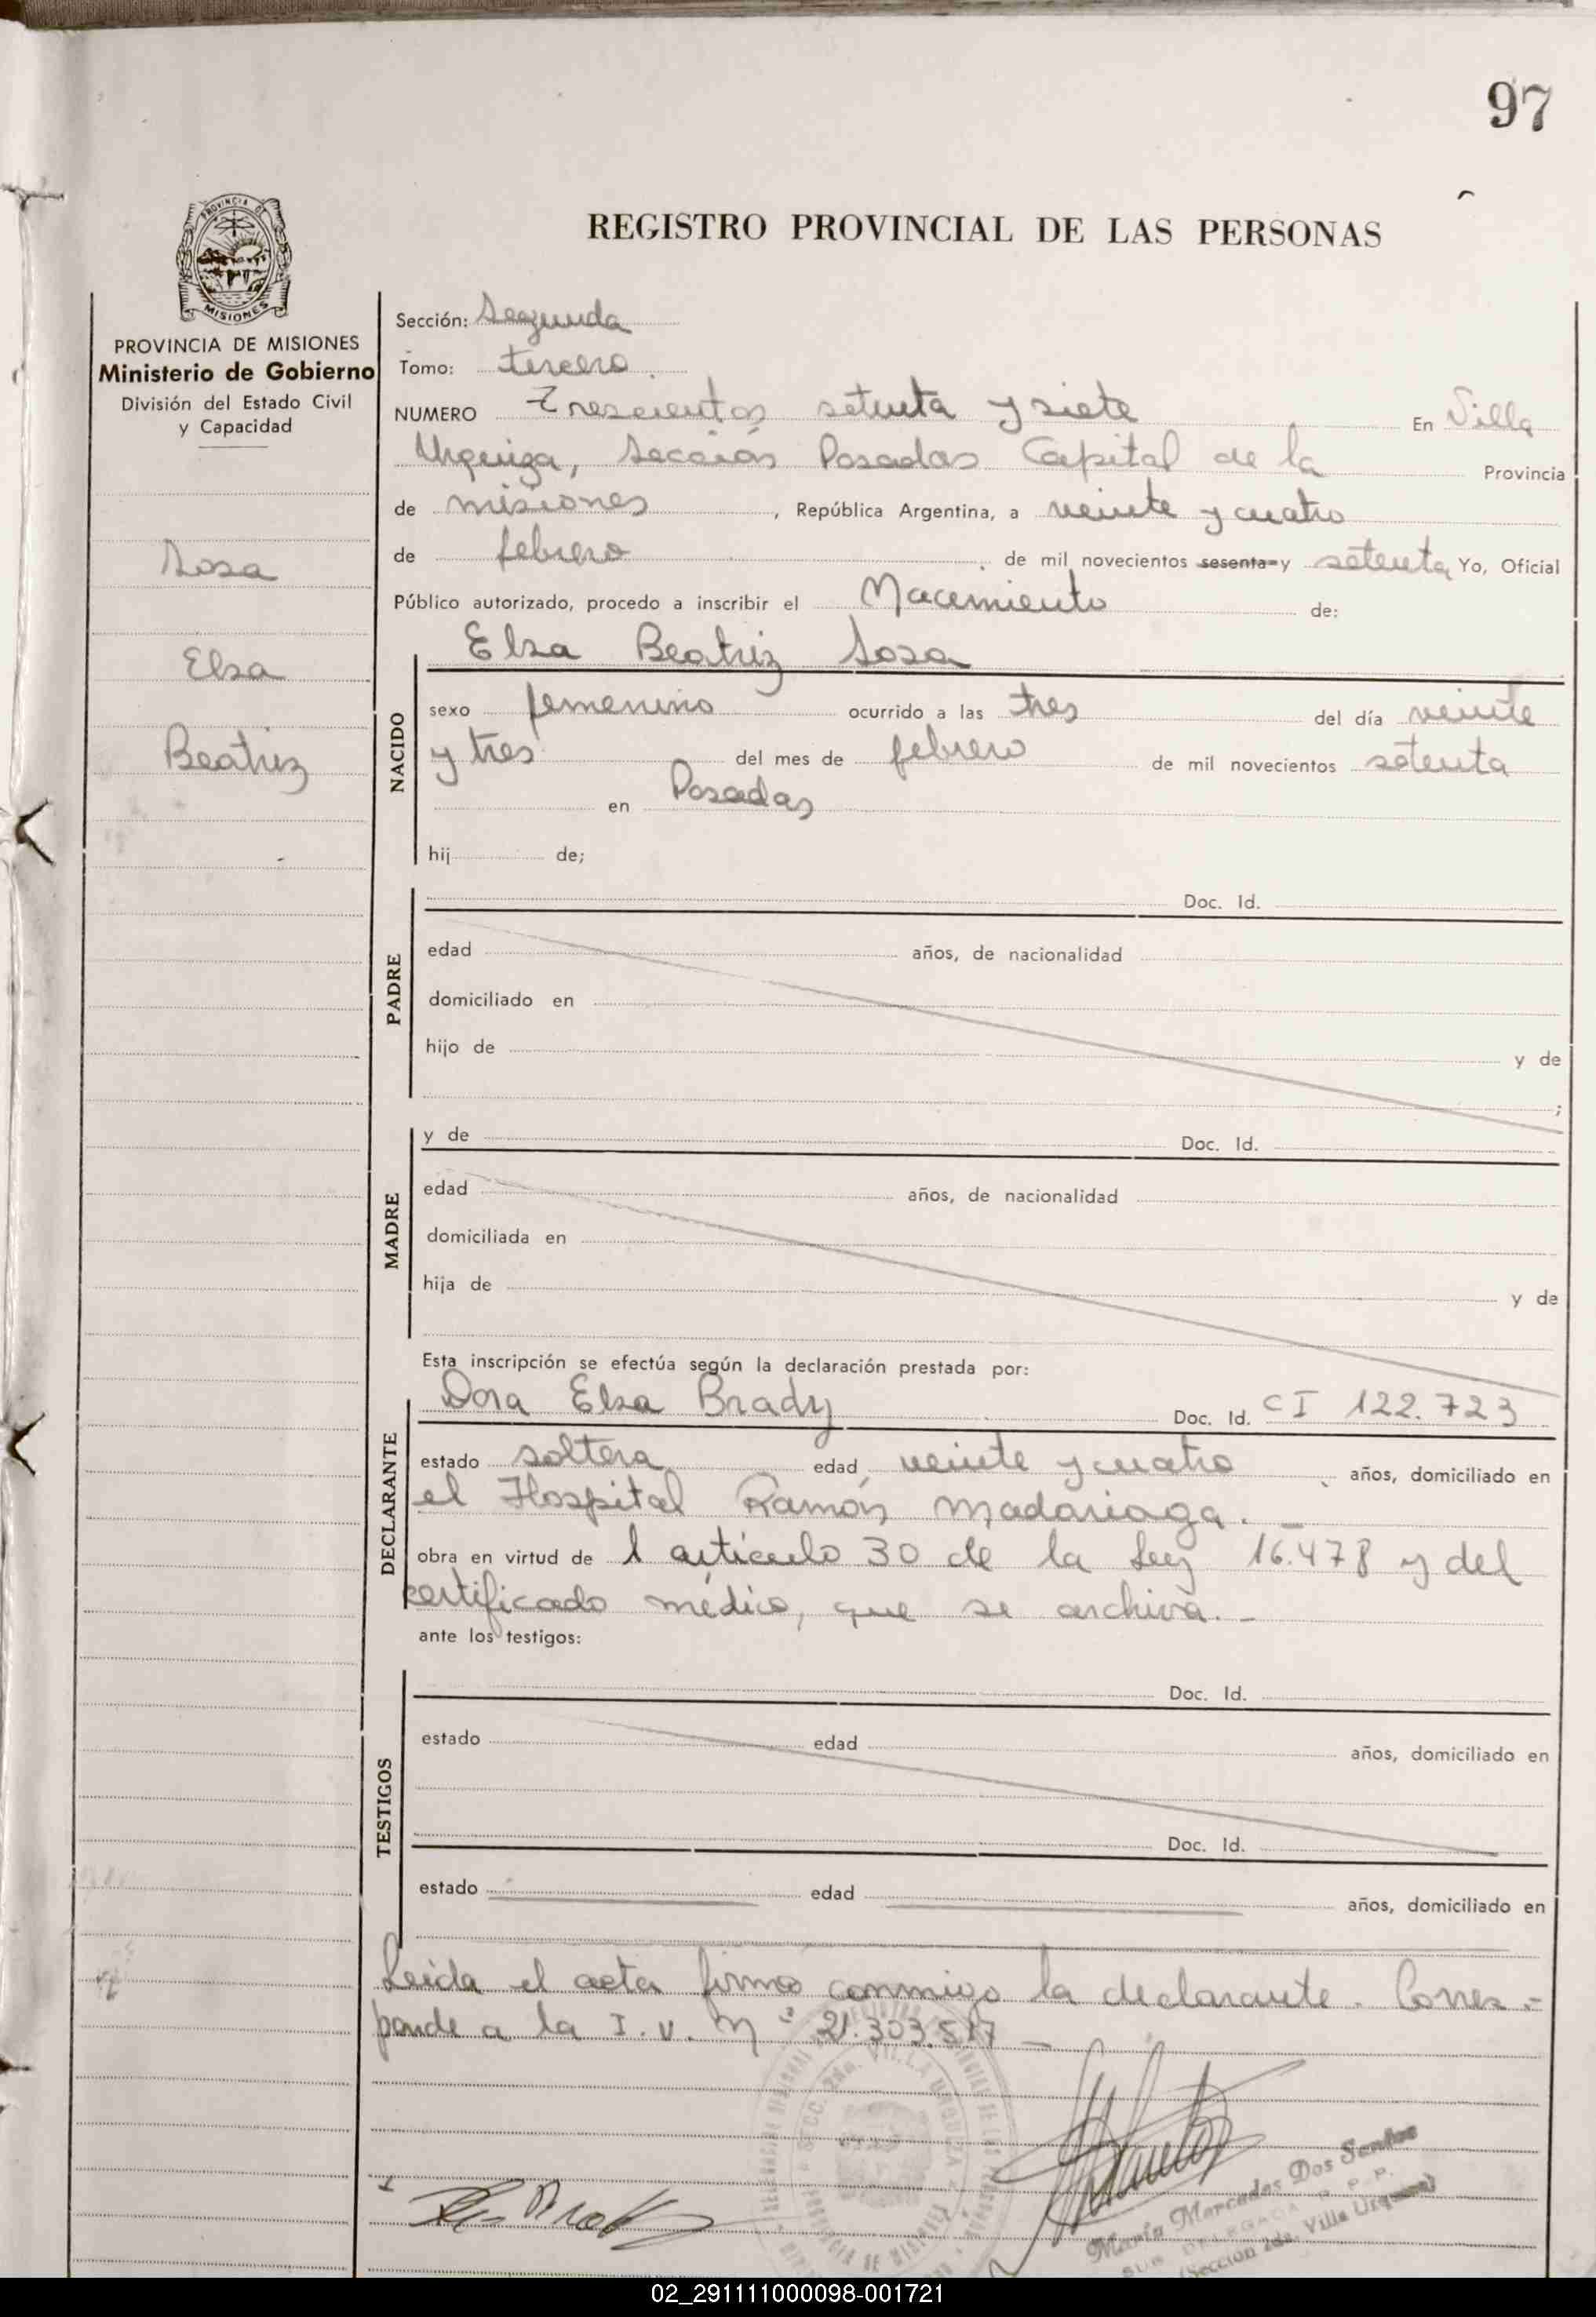 97
REGISTRO PROVINCIAL DE LAS PERSONAS
PROVINCIA DE
MISIONES
PROVINCIA DE MISIONES
Ministerio de Gobierno
División del Estado Civil
y Capacidad
Sosa
Elsa
Beatriz
Sección: Segunda
Tomo: tercero.
NUMERO Trescientos setenta y siete En Villa
Urquiza, Sección Posadas Capital de la Provincia
de misiones, República Argentina, a veinte y cuatro
de febrero de mil novecientos sesenta y setenta Yo, Oficial
Público autorizado, procedo a inscribir el Nacimiento de:
NACIDO
Elsa Beatriz Sosa
sexo femenino ocurrido a las tres del día veinte
y tres del mes de febrero de mil novecientos setenta
en Posadas
hij de;
PADRE
Doc. Id.
edad años, de nacionalidad
domiciliado en
hijo de y de
;
MADRE
y de Doc. Id.
edad años, de nacionalidad
domiciliada en
hija de y de
Esta inscripción se efectúa según la declaración prestada por:
DECLARANTE
Dora Elsa Brady Doc. Id. CI 122.723
estado soltera edad veinte y cuatro años, domiciliado en
el Hospital Ramón Madariaga. _
obra en virtud de l artículo 30 de la Ley 16.478 y del
certificado médico, que se archiva. _
ante los testigos:
TESTIGOS
Doc. Id.
estado edad años, domiciliado en
Doc. Id.
estado edad años, domiciliado en
Leída el acta firma conmigo la declarante. Corres-
ponde a la I. V. Nº 21.303.517 _
María Mercedes Dos Santos
SUB DELEGADA R. P. P.
(Sección 2da. Villa Urquiza)
02_291111000098-001721